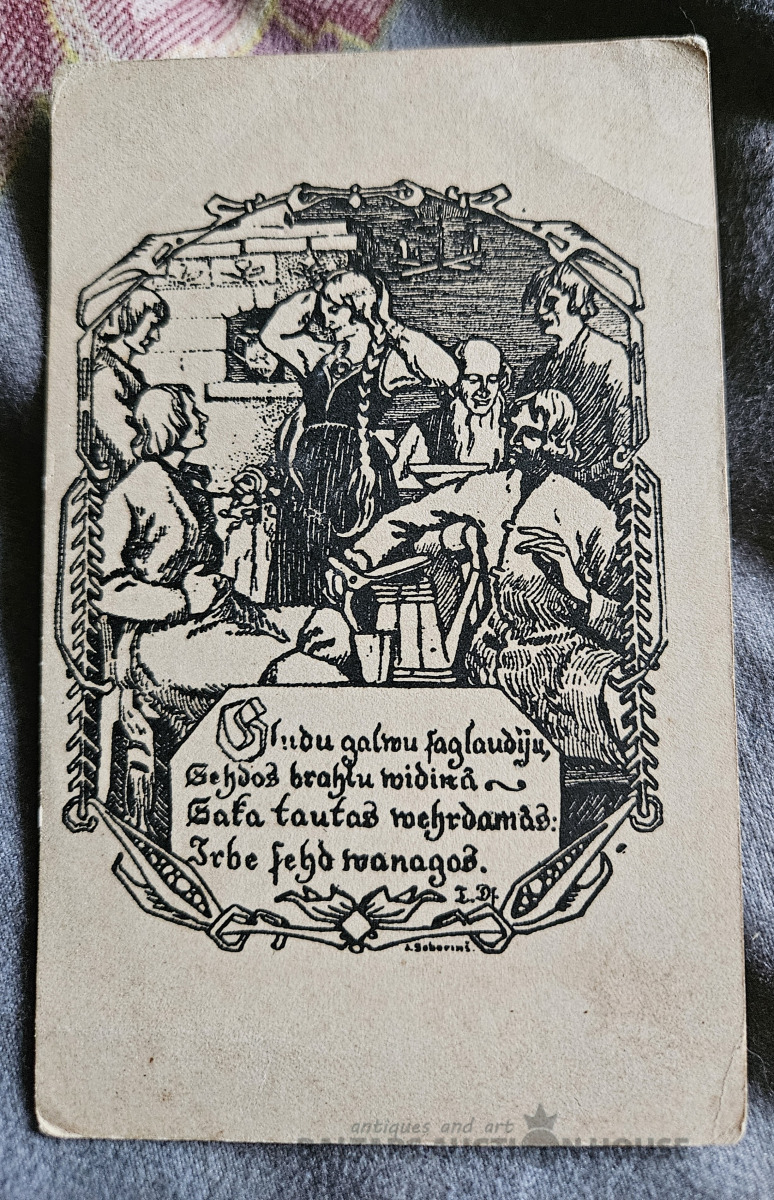 Gludu galwu saglaudiju,
Sehdos brahļu widinâ ~
Saka tautas wehrdamâs:
Irbe sehd wanagos.
T. Dſ.
antiques and art
BALTARS AUCTION HOUSE